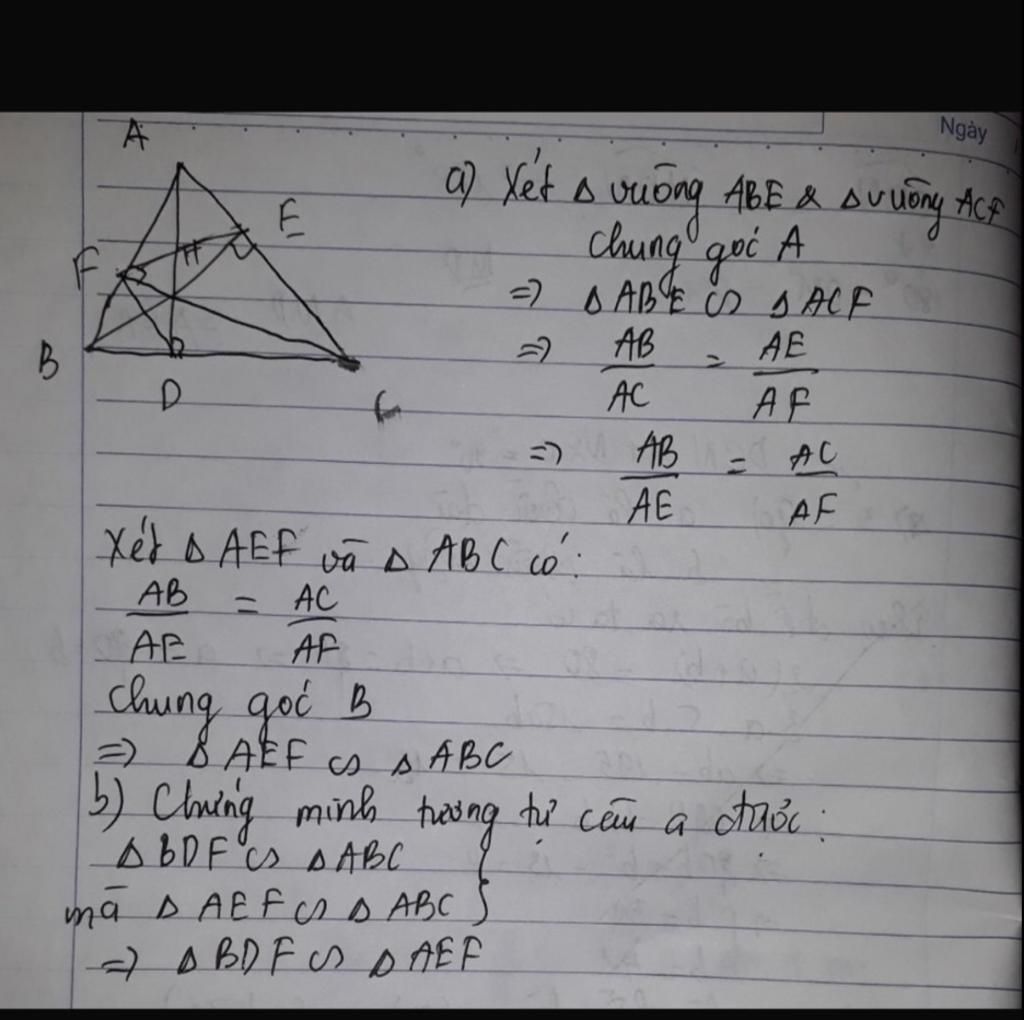 Ngày
A
E
F
H
B
D
C
a) Xét Δ vuông ABE & Δ vuông ACF
chung góc A
=> Δ ABE ∽ Δ ACF
=> AB/AC = AE/AF
=> AB/AE = AC/AF
Xét Δ AEF và Δ ABC có:
AB/AE = AC/AF
chung góc B
=> Δ AEF ∽ Δ ABC
b) Chứng minh tương tự câu a được:
Δ BDF ∽ Δ ABC
mà Δ AEF ∽ Δ ABC }
=> Δ BDF ∽ Δ AEF